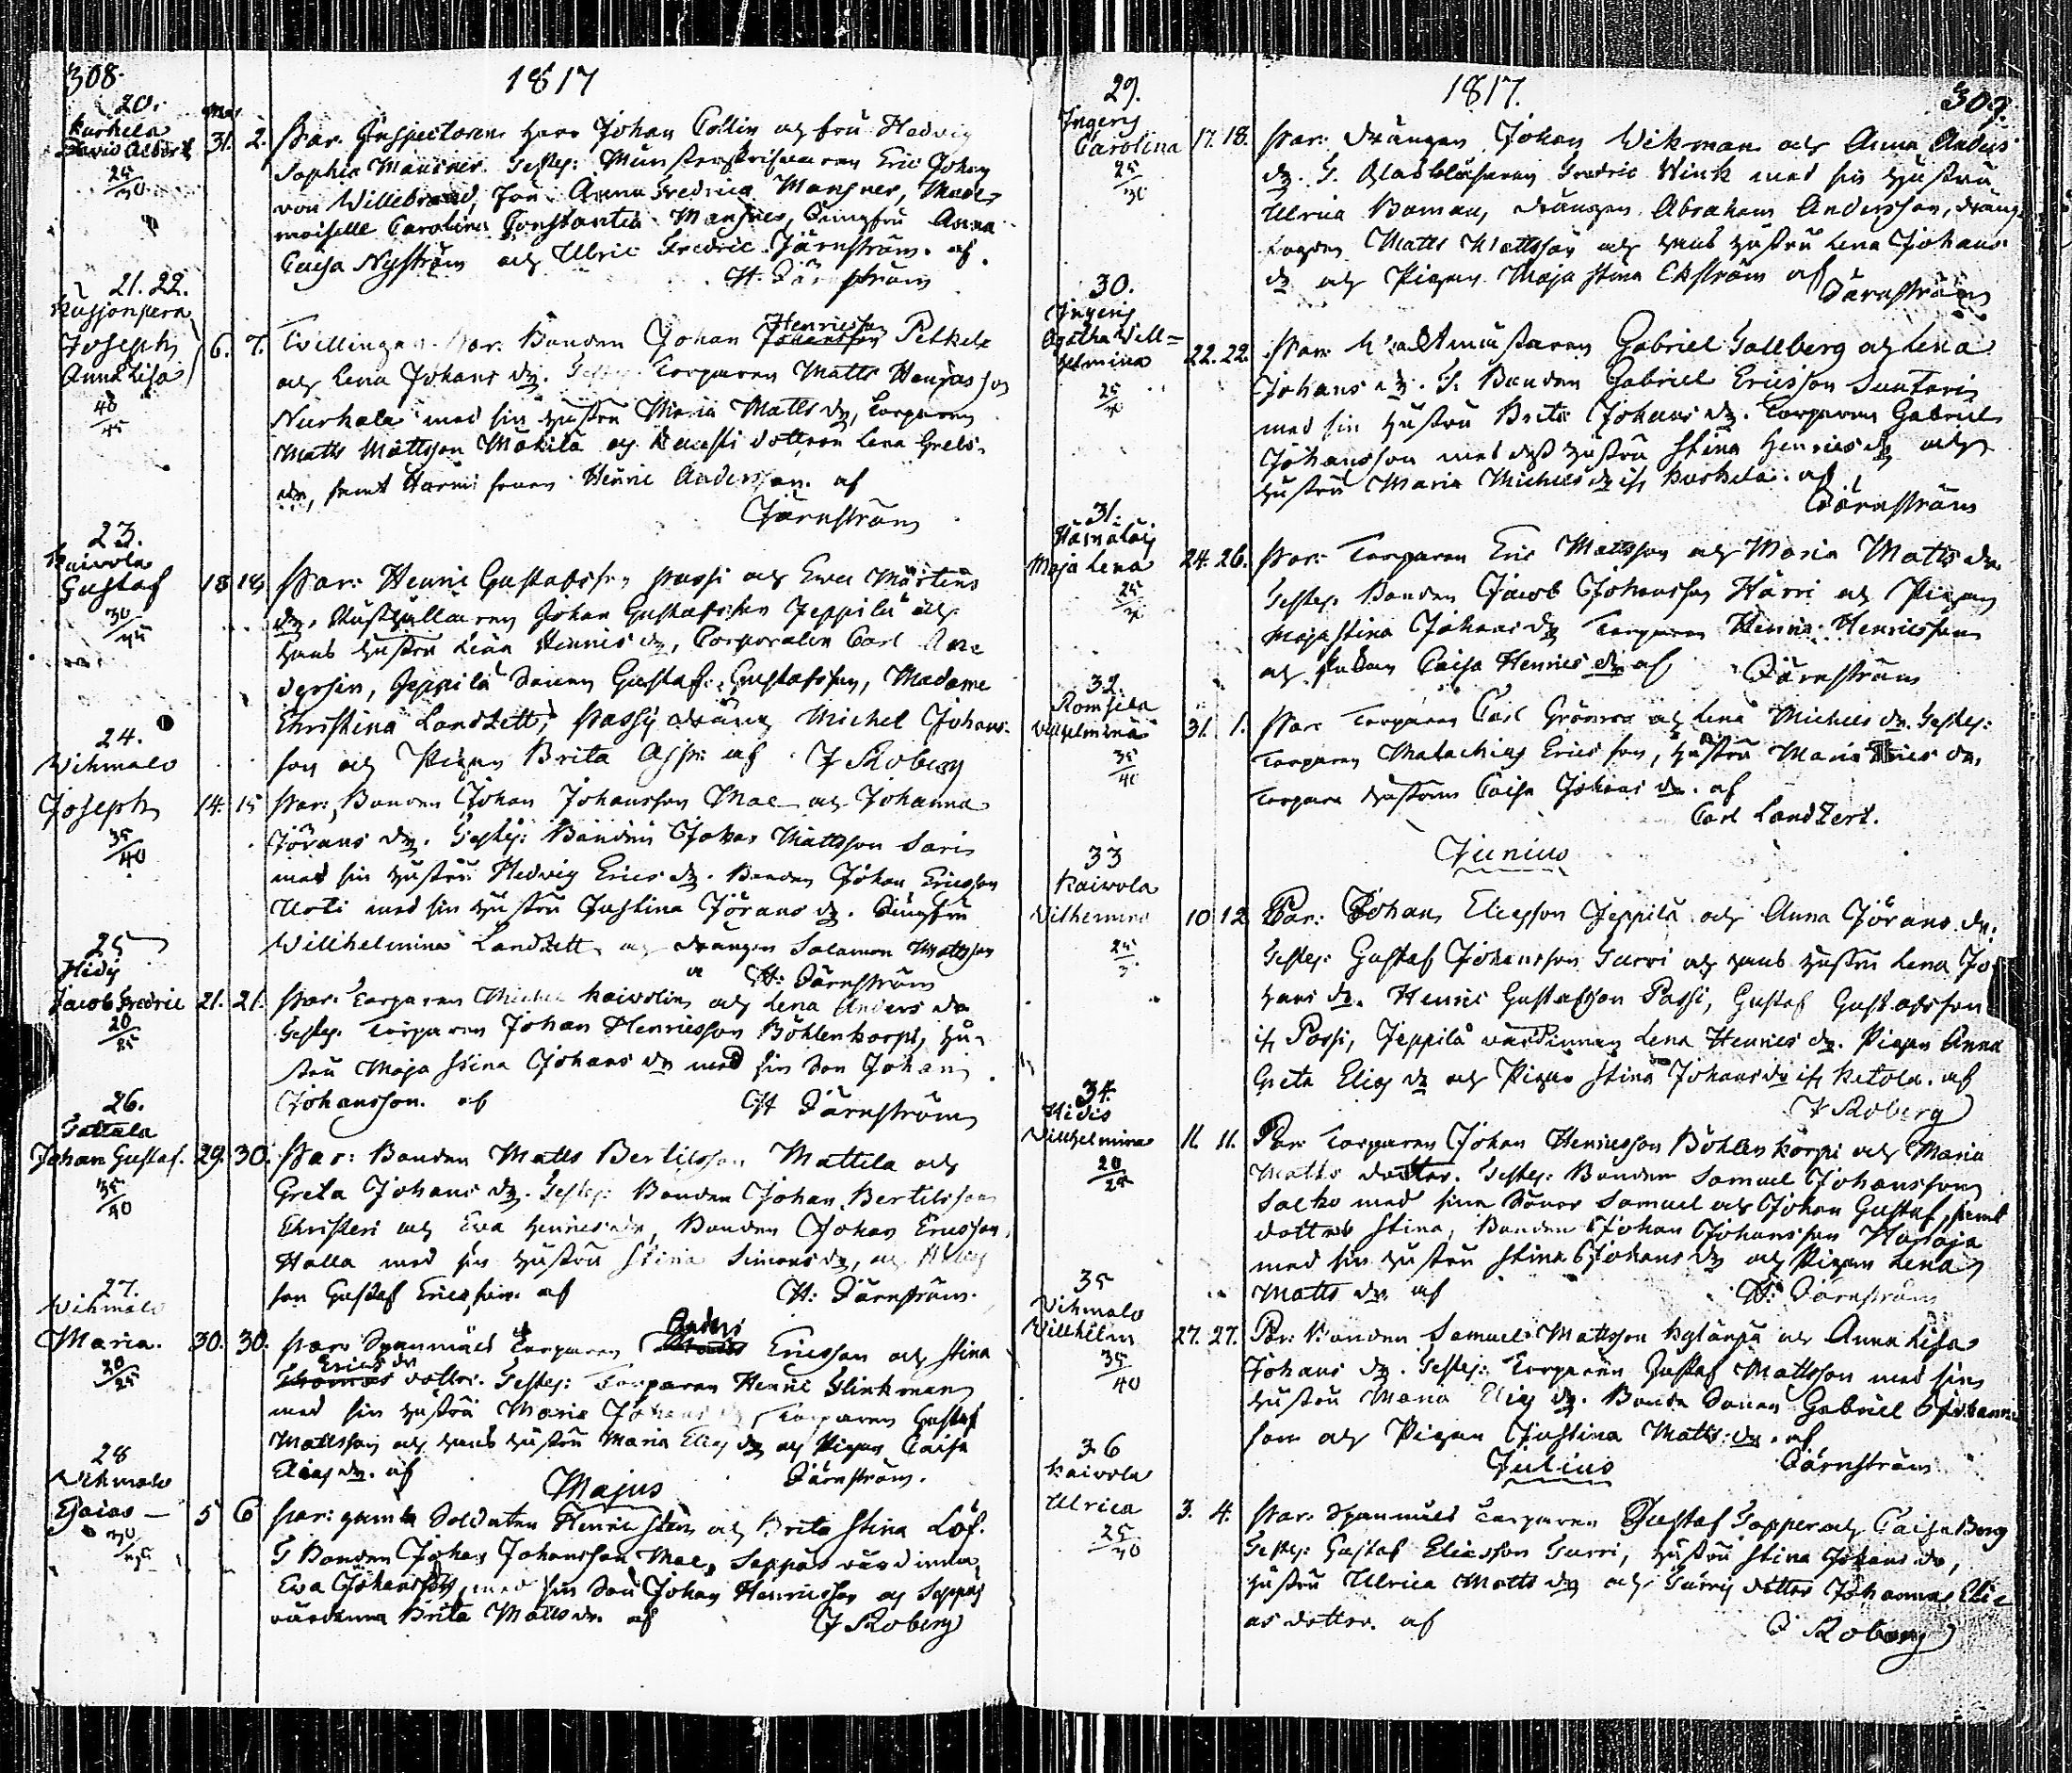 308.
1817
20.
Kurkela
David Albert 31. 2. Par. Inspectoren Herr Johan Collin och fru Hedvig
25/30
Sophia Mansner. Testes: Munsterskrifvaren Eric Johan
von Willebrand, fru Anna Fredrica Mansner, Made-
moiselle Carolina Constantia Mansner, Jungfru Anna
Caisa Nyström och Ulric Fredric Järnström. af
H. Järnström
21. 22.
Joseph
Anna Lisa 6. 7. Tvillingar. Par. Bonden Johan Henricsson Johansson Pelkele
40/45
och Lena Johans dr. Testes: Torparen Matts
Nurkala med sin hustru Maria Matts dr, Torparen
Matts Mattsson Mäkilä och dottren Lena
dr, samt Henric Andersson. af
Järnström
23.
Kaivola
Gustaf 18 18 Par: Henric Gustafsson Passi och Ewa Mårtens
30/45
dr. Rusthållaren Johan Gustafsson Jeppilä och
hans hustru Lena Henrics dr, Corporalen Carl An-
dersin, Jeppilä Sonen Gustaf Gustafsson, Madame
Christina Landzett, Passi dräng Michel Johans-
son och Pigan Brita af J Roberg
24.
Vihmalo
Joseph 14. 15 Par: Bonden Johan Johansson Mae och Johanna
35/40
Jörans dr. Testes: Bonden Johan Mattsson Sari
med sin hustru Hedvig Erics dr. Bonden Johan Ericsson
Uoti med sin hustru Justina Jörans dr. Jungfru
Willhelmina Landzett och drängen Salamon Mattsson
af H: Järnström
25
Hidis
Jacob Fredric 21. 21. Par: Torparen Michel Kaivolin och Lena Anders dr
20/25
Testes. Torparen Johan Henricsson Böhlenkorpi, hu-
stru Maja Stina Johans dr med sin Son Johan
Johansson. af H Järnström
26.
Tattala
Johan Gustaf. 29. 30. Par: Bonden Matts Bertilsson Mattila och
35/40
Greta Johans dr. Testes: Bonden Johan Bertilsson
Christeri och Eva Henrics dr, Bonden Johan Ericsson
Halla med sin hustru Stina Simons dr, och
son Gustaf Ericsson. af H: Järnström.
27.
Vihmalo
Maria. 30. 30. Par: Spanmåls Torparen Anders Ericsson och Stina
20/25
Erics dr
Thomas dotter. Testes: Torparen Henric Glinkman
med sin hustru Maria Johans dr, Torparen Gustaf
Mattsson och hans hustru Maria Elias dr och Pigan Caisa
Elias dr. af Järnström.
Majus
28
Vihmalo
Esaias — 5 6 Par: gamla Soldaten Henric Sten och Brita Stina Löf.
T Bonden Johan Johansson Mae, Seppäs värdinna
Eva Johans dr, med sin Son Johan Henricsson och Seppäs
värdinna Brita Matts dr. af J Roberg
1817.
309.
29.
Ingeris
Carolina 17. 18. Par: drängen Johan Wikman och Anna Anders
25/30
dr. T. Glasblåsaren Fredric Wink med sin hustru
Ulrica Boman, drängen Abraham Andersson, dräng
Matts Mattsson och hans hustru Lena Johans
dr och Pigan Maja Stina Ekström af Järnström
30.
Ingeris
Agatha Vill=
helmina 22. 22. Par: Gabriel Sallberg och Lena
25/30
Johans dr. T. Bonden Gabriel Ericsson Suutari
med sin hustru Brita Johans dr. Torparen Gabriel
Johansson med dess hustru Stina Henrics dr och
hustru Maria Michels dr ifr Kurkela. af
Järnström
31.
Maja Lena 24. 26. Par: Torparen Eric Mattsson och Maria Matts dr
25/30
Testes. Bonden Jacob Johansson Härri och Pigan
Maja Stina Johans dr Torparen Henric Henricsson
och Caisa Henrics dr af Järnström
32.
Romsila
Vilhelmina 31. 1. Par: Torparen Carl Grönros och Lena Michels dr. Testes:
35/40
Torparen Malachias Ericsson, hustru Maria Erics dr,
Torpare hustrun Caisa Johans dr. af
Carl Landzett.
Junius
33
Kaivola
Vilhemina 10 12 Par: Johan Eliesson Jeppilä och Anna Jörans dr.
Testes: Gustaf Johansson Turri och hans hustru Lena Jo-
hans dr. Henric Gustafsson Passi, Gustaf Gustafsson
ifr Passi, Jeppilä värdinnan Lena Henrics dr. Pigan Anna
Greta Elias dr och Pigan Stina Johans dr ifr Ketola. af
J Roberg
34.
Hidis
Vilhelmina 11. 11. Par: Torparen Johan Henricsson Böhlenkorpi och Maria
20/25
Matts dotter. Testes: Bonden Samuel Johansson
Salko med sina Söner Samuel och Johan Gustaf, samt
dotter Stina, Bonden Johan Johansson Haraja
med sin hustru Stina Johans dr och Pigan Lena
Matts dr. af H: Järnström
35
Vihmalo
Villhelm 27. 27. Par: Bonden Samuel Mattsson Kylänpä och Anna Lisa
35/40
Johans dr. Testes: Torparen Gustaf Mattsson med sin
hustru Maria Elias dr. Bonde Sonen Gabriel Johans-
son och Pigan Justina Matts dr. af
Järnström
Julius
36
Kaivola
Ulrica 3. 4. Par: Spanmåls Torparen Gustaf Topper och Caisa Berg
25/30
Testes: Gustaf Eliasson Turri, hustru Stina Johans dr,
hustru Ulrica Matts dr och Turris dotter Johanna Eli-
as dotter. af J Roberg